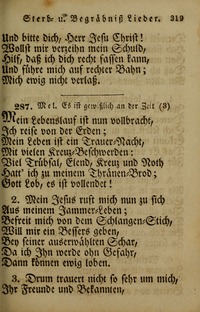 Sterb- u. Begräbniß Lieder. 319
Und bitte dich, Herr Jesu Christ!
Wollst mir verzeihn mein Schuld,
Hilf, daß ich dich recht fassen kann,
Und führe mich auf rechter Bahn;
Mich ewig nicht verlaß.
287. Mel. Es ist gewißlich an der Zeit (3)
Mein Lebenslauf ist nun vollbracht,
Ich reise von der Erden;
Mein Leben ist ein Trauer-Nacht,
Mit vielen Kreuz-Beschwerden:
Viel Trübsal, Elend, Kreuz und Noth
Hatt' ich zu meinem Thränen-Brod;
Gott Lob, es ist vollendet!
2. Mein Jesus ruft mich nun zu sich
Aus meinem Jammer-Leben;
Befreit mich von dem Schlangen-Stich,
Will mir ein Bessers geben,
Bey seiner auserwählten Schar,
Da ich Ihn werde ohn Gefahr,
Dann können ewig loben.
3. Drum trauert nicht so sehr um mich,
Ihr Freunde und Bekannten,